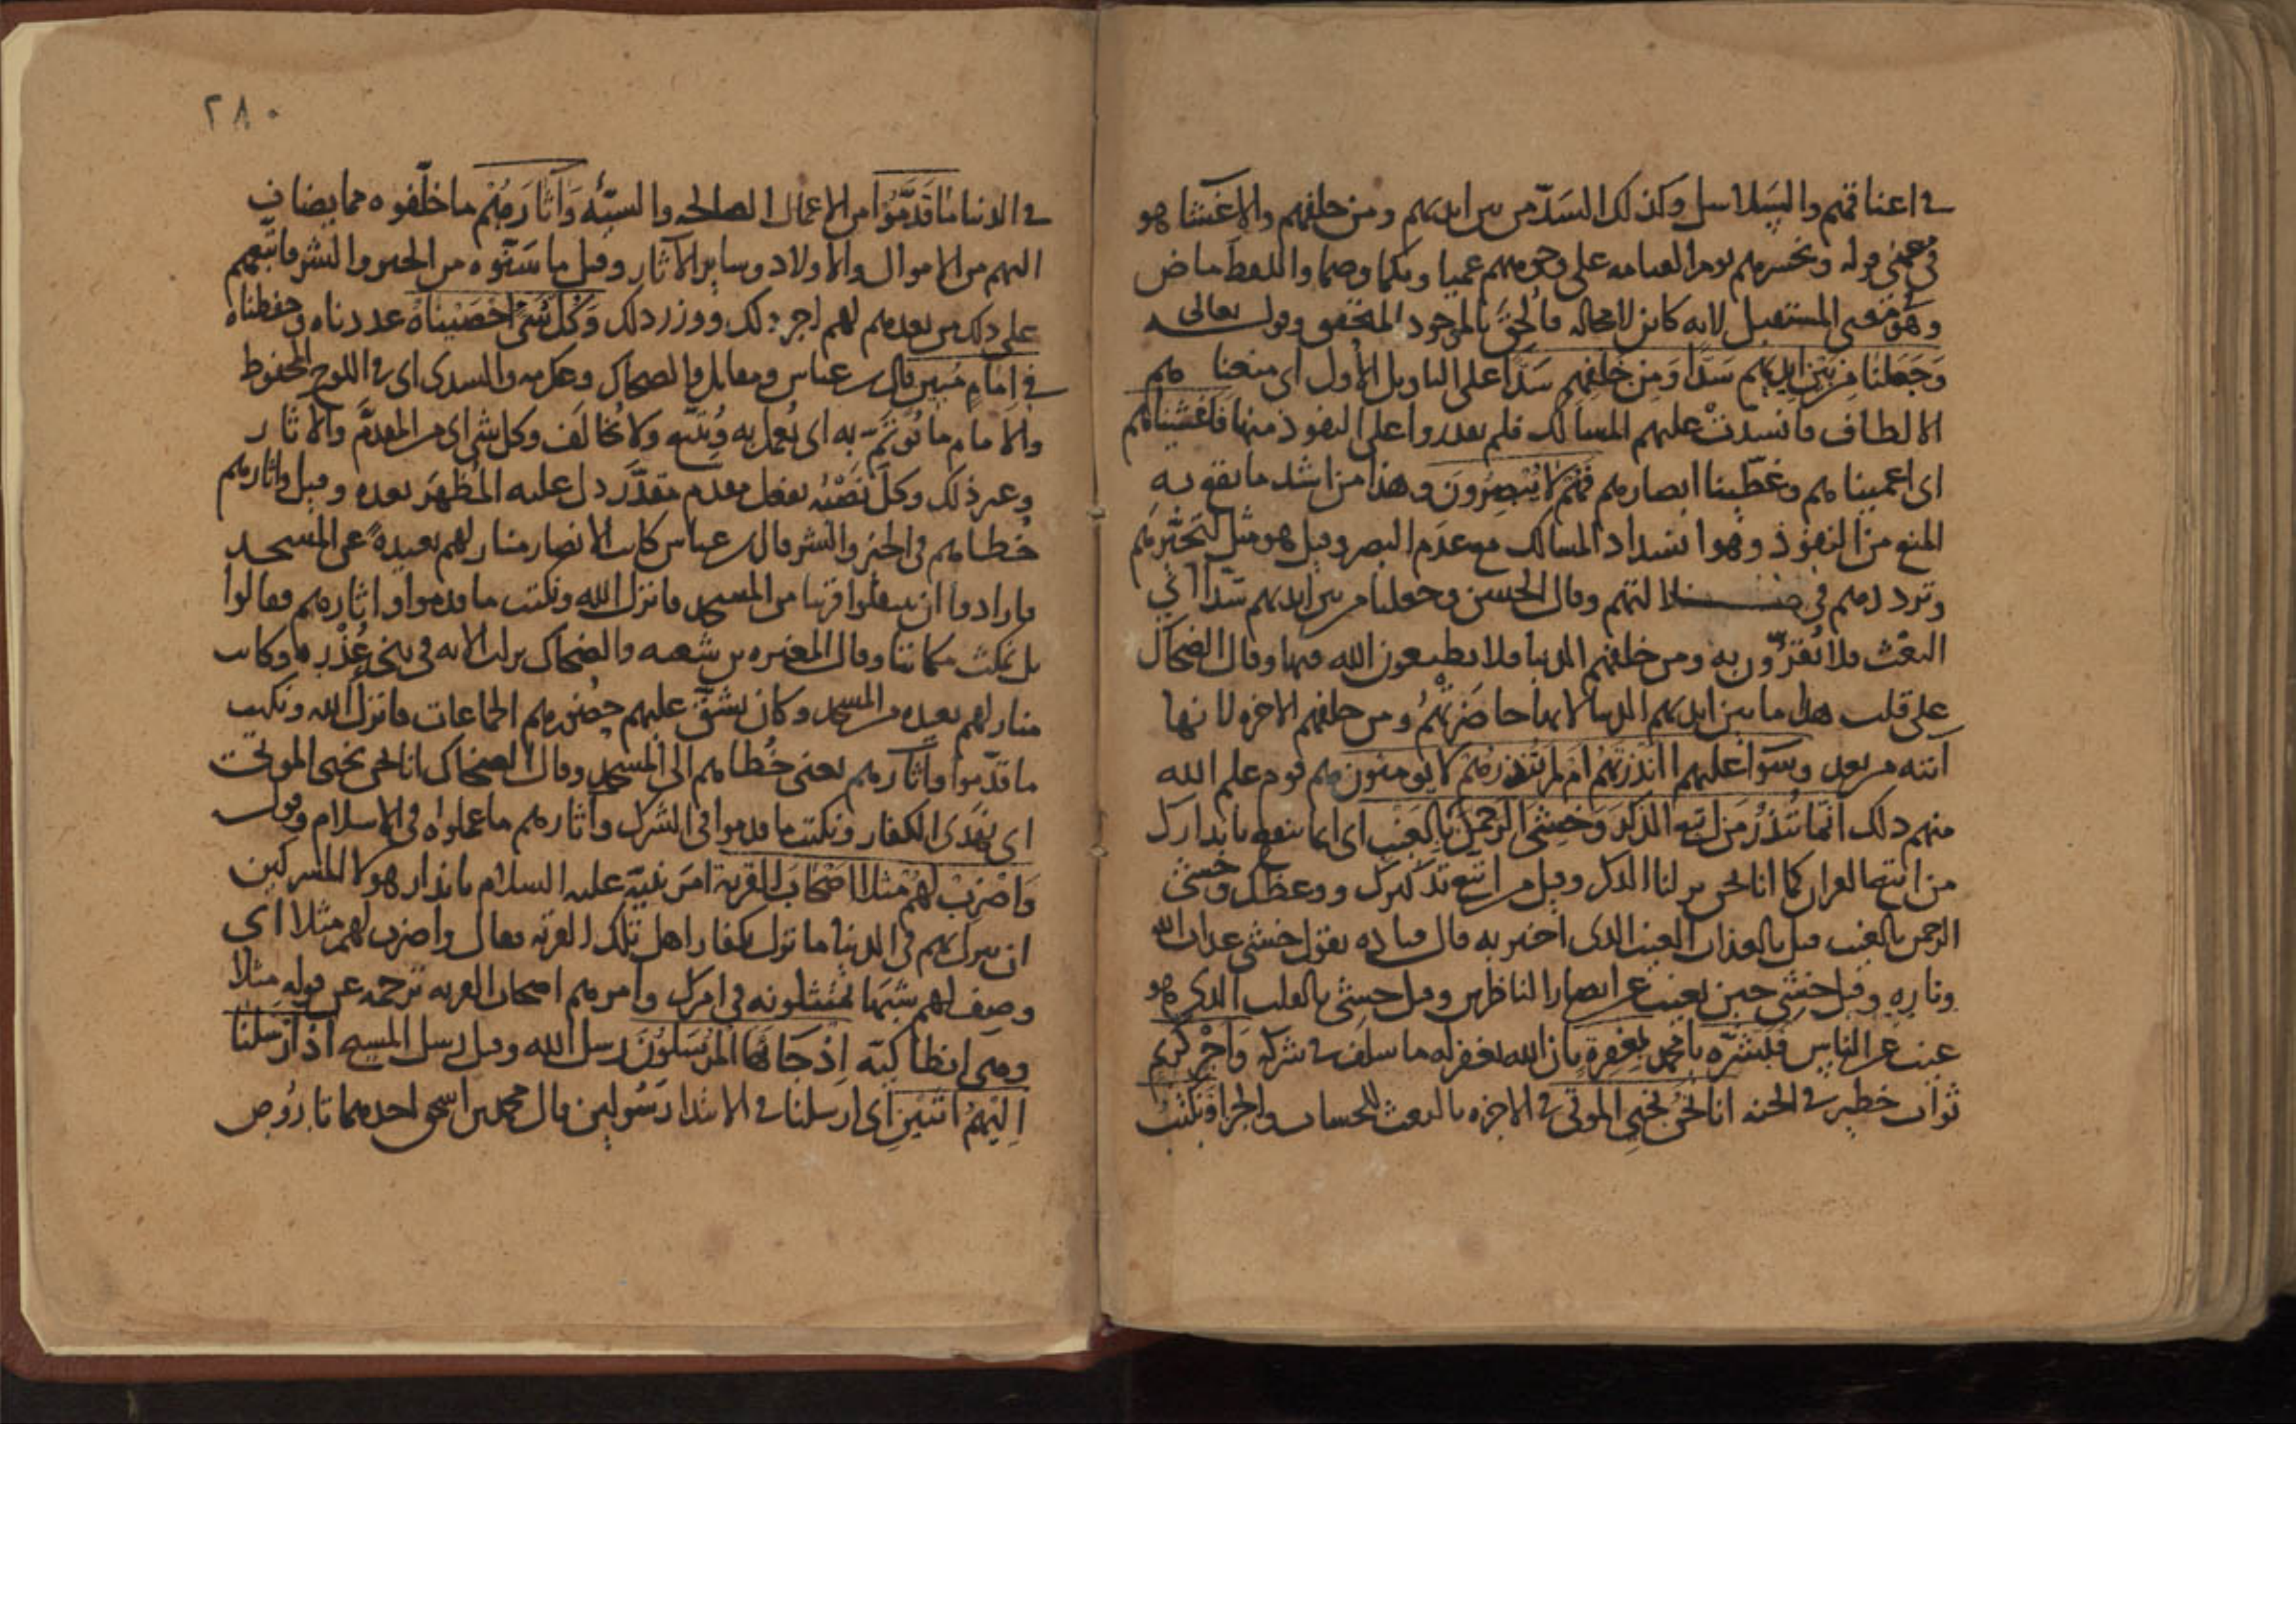 في اعناقهم والسلاسل وكذلك السد من بين ايديهم ومن خلفهم والاغشا هو
في معنى قوله ونحشرهم يوم القيامه على وجوههم عميا وبكما وصما واللفظ ماض
وهو في معنى المستقبل لانه كاين لا محاله فالحق بالموجود المتحقق وقوله تعالى
وجعلنا من بين ايديهم سدا ومن خلفهم سدا على التاويل الاول اى منعنا هم
الالطاف فانسدت عليهم المسالك فلم يقدروا على النفوذ منها فاغشيناهم
اى اعميناهم وغطينا ابصارهم فهم لا يبصرون وهذا من اشد ما يقع به
المنع من النفوذ وهو انسداد المسالك مع عدم البصر وقيل هو مثل لتحيرهم
وترددهم في ضلالتهم وقال الحسن وجعلنا من بين ايديهم سدا اي
البعث فلا يقرون به ومن خلفهم الدنيا فلا يطيعون الله فيها وقال الضحاك
على قلب هذا ما بين ايديهم الدنيا لانها حاضرتهم ومن خلفهم الاخره لانها
اتيه من بعد وسوا عليهم اانذرتهم ام لم تنذرهم لا يومنون هم قوم علم الله
منهم ذلك انما تنذر من اتبع الذكر وخشى الرحمن بالغيب اى انما ينتفع بانذارك
من اتبع القران كما انا نحن نزلنا الذكر وقيل من اتبع تذكيرك ووعظك وخشى
الرحمن بالغيب قيل بالعذاب الغيب الذى اخبر به قال قتاده يقول خشى عذاب الله
وناره وقيل خشى حين يغيب عن ابصار الناظرين وقيل خشى بالقلب الذى هو
غيب عن الناس فبشره يا محمد بمغفرة بان الله يغفر له ما سلف في شركه واجر كريم
ثواب خطير في الجنه انا نحن نحيى الموتى في الاخره بالبعث للحساب والجزا ونكتب
٢٨٠
في الدنيا ما قدموا من الاعمال الصالحه والسيئه وآثارهم ما خلفوه مما يضاف
اليهم من الاموال والاولاد وساير الآثار وقيل ما سنوه من الخير والشر فاتبعهم
على ذلك من بعدهم لهم اجر ذلك ووزر ذلك وكل شئ احصيناه عددناه وحفظناه
في امام مبين قال بن عباس ومقاتل والضحاك وعكرمه والسدى اى في اللوح المحفوظ
والامام ما يوتم به اى يعمل به ويتبع ولا يخالف وكل شى اى من المقدم والاثار
وغير ذلك وكل نصبه بفعل مقدم مقدر دل عليه المظهر بعده وقيل واثارهم
خطاهم في الخير والشر قال بن عباس كانت الانصار منازلهم بعيدة عن المسجد
فارادوا ان ينتقلوا قريبا من المسجد فانزل الله ونكتب ما قدموا واثارهم فقالوا
بل نمكث مكاننا وقال المغيره بن شعبه والضحاك نزلت الايه في بنى عذره وكانت
منازلهم بعيده من المسجد وكان يشق عليهم حضورهم الجماعات فانزل الله ونكتب
ما قدموا وآثارهم يعنى خطاهم الى المسجد وقال الضحاك انا نحن نحيى الموتى
اى نهدى الكفار ونكتب ما قدموا في الشرك وآثارهم ما عملوا ه في الاسلام وقوله
واضرب لهم مثلا اصحاب القرية امر نبيه عليه السلام بانذار هولا المشركين
ان ينزل بهم في الدنيا ما نزل بكفار اهل تلك القريه فقال واضرب لهم مثلا اى
وصف لهم شبها يمتثلونه في امرك وامرهم اصحاب القريه ترجمه عن قوله مثلا
وهى انطاكيه اذ جاءها المرسلون رسل الله وقيل رسل المسيح اذ ارسلنا
اليهم اثنين اى ارسلنا في الابتدا رسولين قال محمد بن اسحق احدهما تاروص